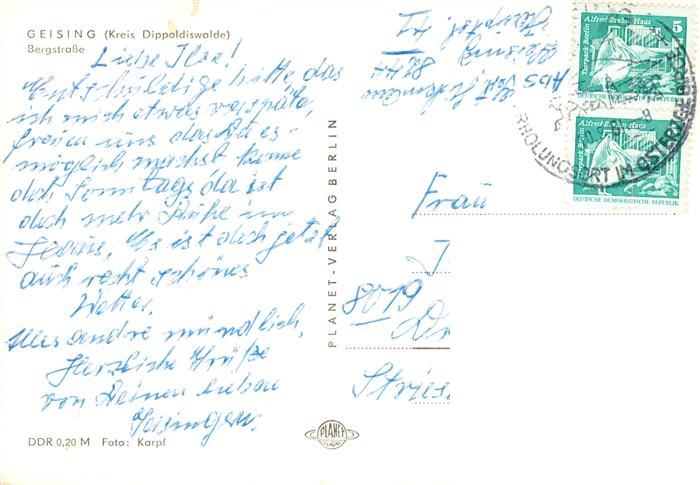 GEISING (Kreis Dippoldiswalde)
Bergstraße
Liebe Ilse!
Entschuldige bitte, das
ich mich etwas verspäte,
freuen uns das du es
möglich machst komme
doch Sonntags da ist
doch mehr Ruhe in
Geising. Es ist doch jetzt
auch recht schönes
Wetter.
Alles andre mündlich,
Herzliche Grüße
von Deinen lieben
Geisingern.
DDR 0,20 M Foto: Karpf
PLANET-VERLAG BERLIN
PLANET
Abs.
Geising
8244
Hauptstr.
Frau
8019
Dr
Stries
Alfred-Brehm-Haus
Tierpark Berlin
5
DEUTSCHE DEMOKRATISCHE REPUBLIK
Alfred-Brehm-Haus
Tierpark Berlin
DEUTSCHE DEMOKRATISCHE REPUBLIK
ERHOLUNGSORT IM OSTERZGEBIRGE